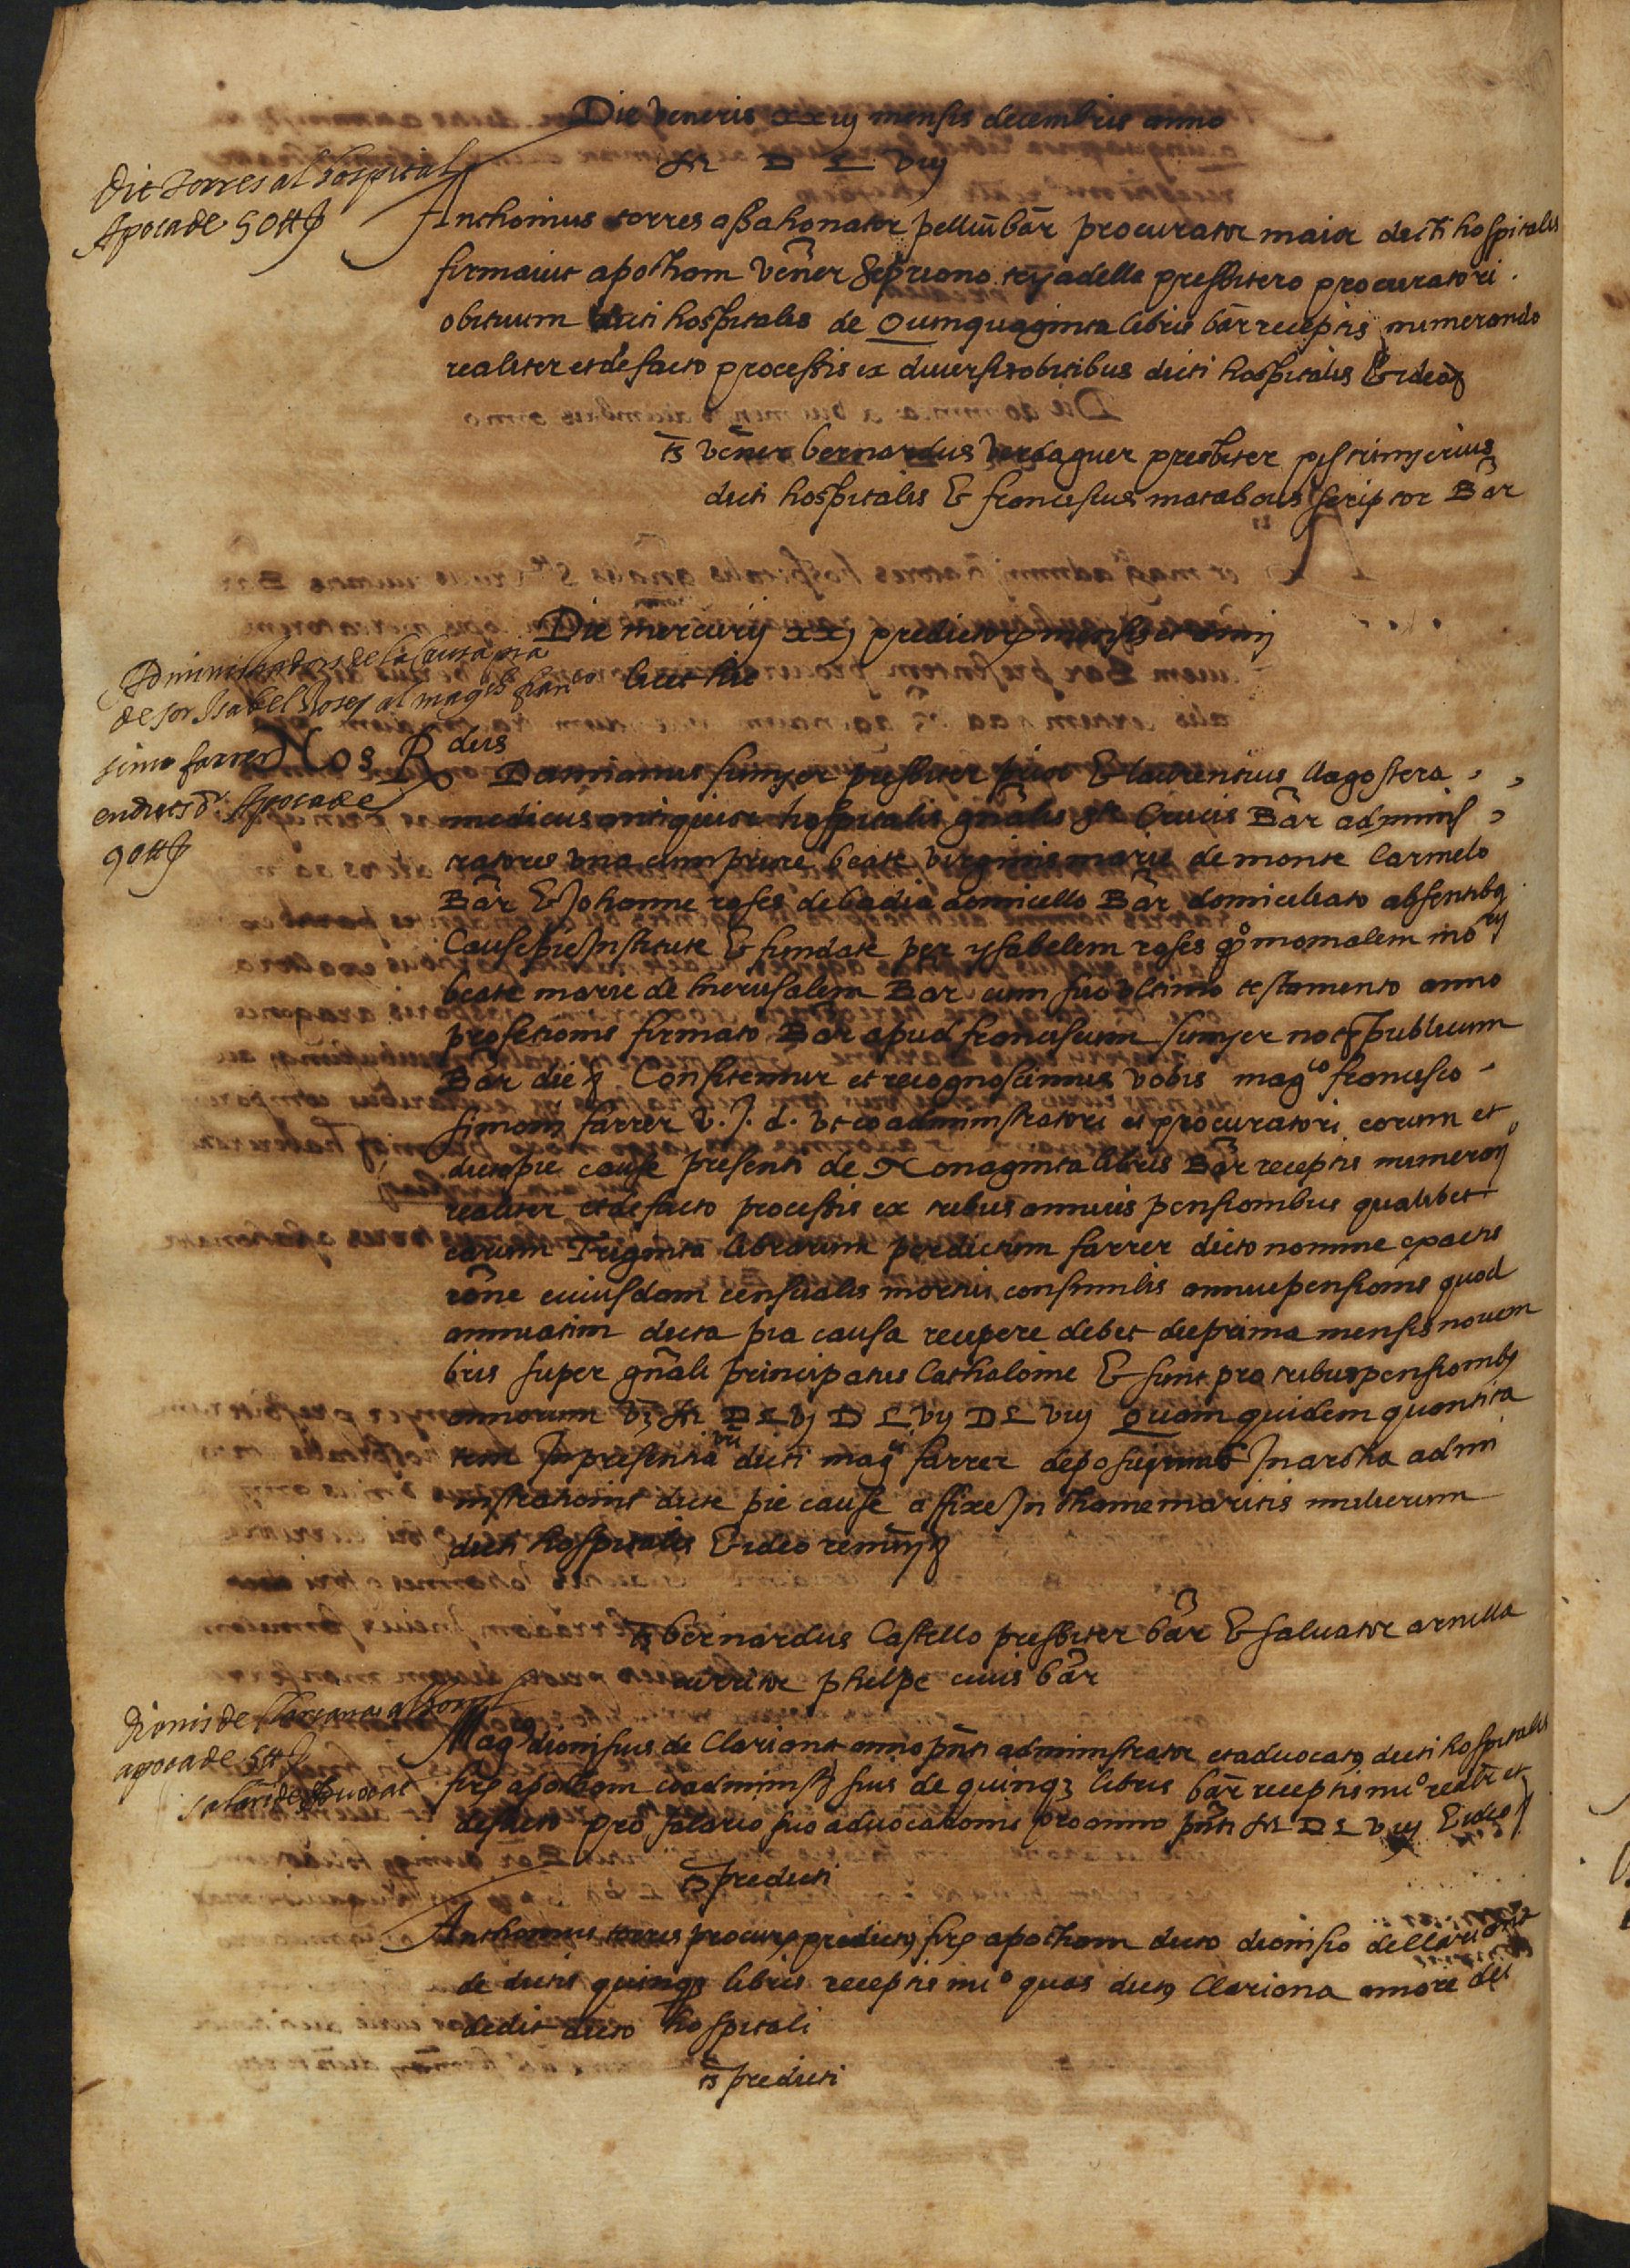 Die veneris xxiij mensis decembris anno
M D L viij
Dit torres al hospital
Apoca de 50 ℔
Anthonius torres assahonator pellium bar procurator maior dicti hospitalis
firmavit apocham vener Sepriono trijadella presbitero procuratori
obituum dicti hospitalis de Quinquaginta libris bar receptis numerando
realiter et de facto processis ex diversis obitibus dicti hospitalis & ideo
ts vener bernardus verdaguer presbiter pistrinyerius
dicti hospitalis & franciscus matabous scriptor Bar
Die mercurij xxj predictor mensis et anny
licet hic
Administradors de la Causa pia
de sor Isabel Roses al magch franco
simo farrer
en drets dr Apoca de
90 ℔
Nos R dus
Damianus sunyer presbiter prior & laurentius llagostera
medicus antiquior hospitalis gnalis ste Crucis Bar adminis
tratores una cum priore beate virginis marie de monte Carmelo
Bar & Johanne roses de badia domicello Bar domiciliato absentibus
Cause pie Institute & fundate per ysabelem roses qo monialem mory
beate marie de hierusalem Bar cum suo ultimo testamento anno
profetionis firmato Bar apud franciscum sunyer not publicum
Bar die Confitemur et recognoscimus vobis magco francisco
simoni farrer v. J. d. ut coadministratori et procuratori eorum et
dicte pie cause presenti de Nonaginta libris Bar receptis numeran
realiter et de facto processis ex tribus annuis pensionibus qualibet
earum Triginta librarum per dictum farrer dicto nomine exactis
rone cuiusdam censualis mortui consimilis annue pensionis quod
annuatim dicta pia causa recipere debet die prima mensis novem
bris super gnali principatus Cathalonie & sunt pro tribus pensionibs
annorum vz M D L vj D L vij D L viij Quam quidem quantita
tem In presentia vri dicti magci farrer deposuimus In archa admi
nistrationis dicte pie cause affixe In thome maritis mulierum
dicti hospitalis & ideo renun
ts bernardus Castello presbiter bar & salvator arnella
curritor phelpe civis bar
Dionis de Clariana al hospital
apoca de 5 ℔
salari de advocat
Magcs dionisius de Clariana anno pnti administrator et advocats dicti hospitalis
fir apocham coadminist suis de quinqz libris bar receptis nuo realr et
de facto pro salario suo advocationis pro anno pnti M D L viij & ideo
ts predicti
Anthonius torres procur predicts fir apocham dicto dionisio de Clariana
de dictis quinqz libris receptis nuo quas dicts Clariana amore dei
dedit dicto hospitali
ts predicti